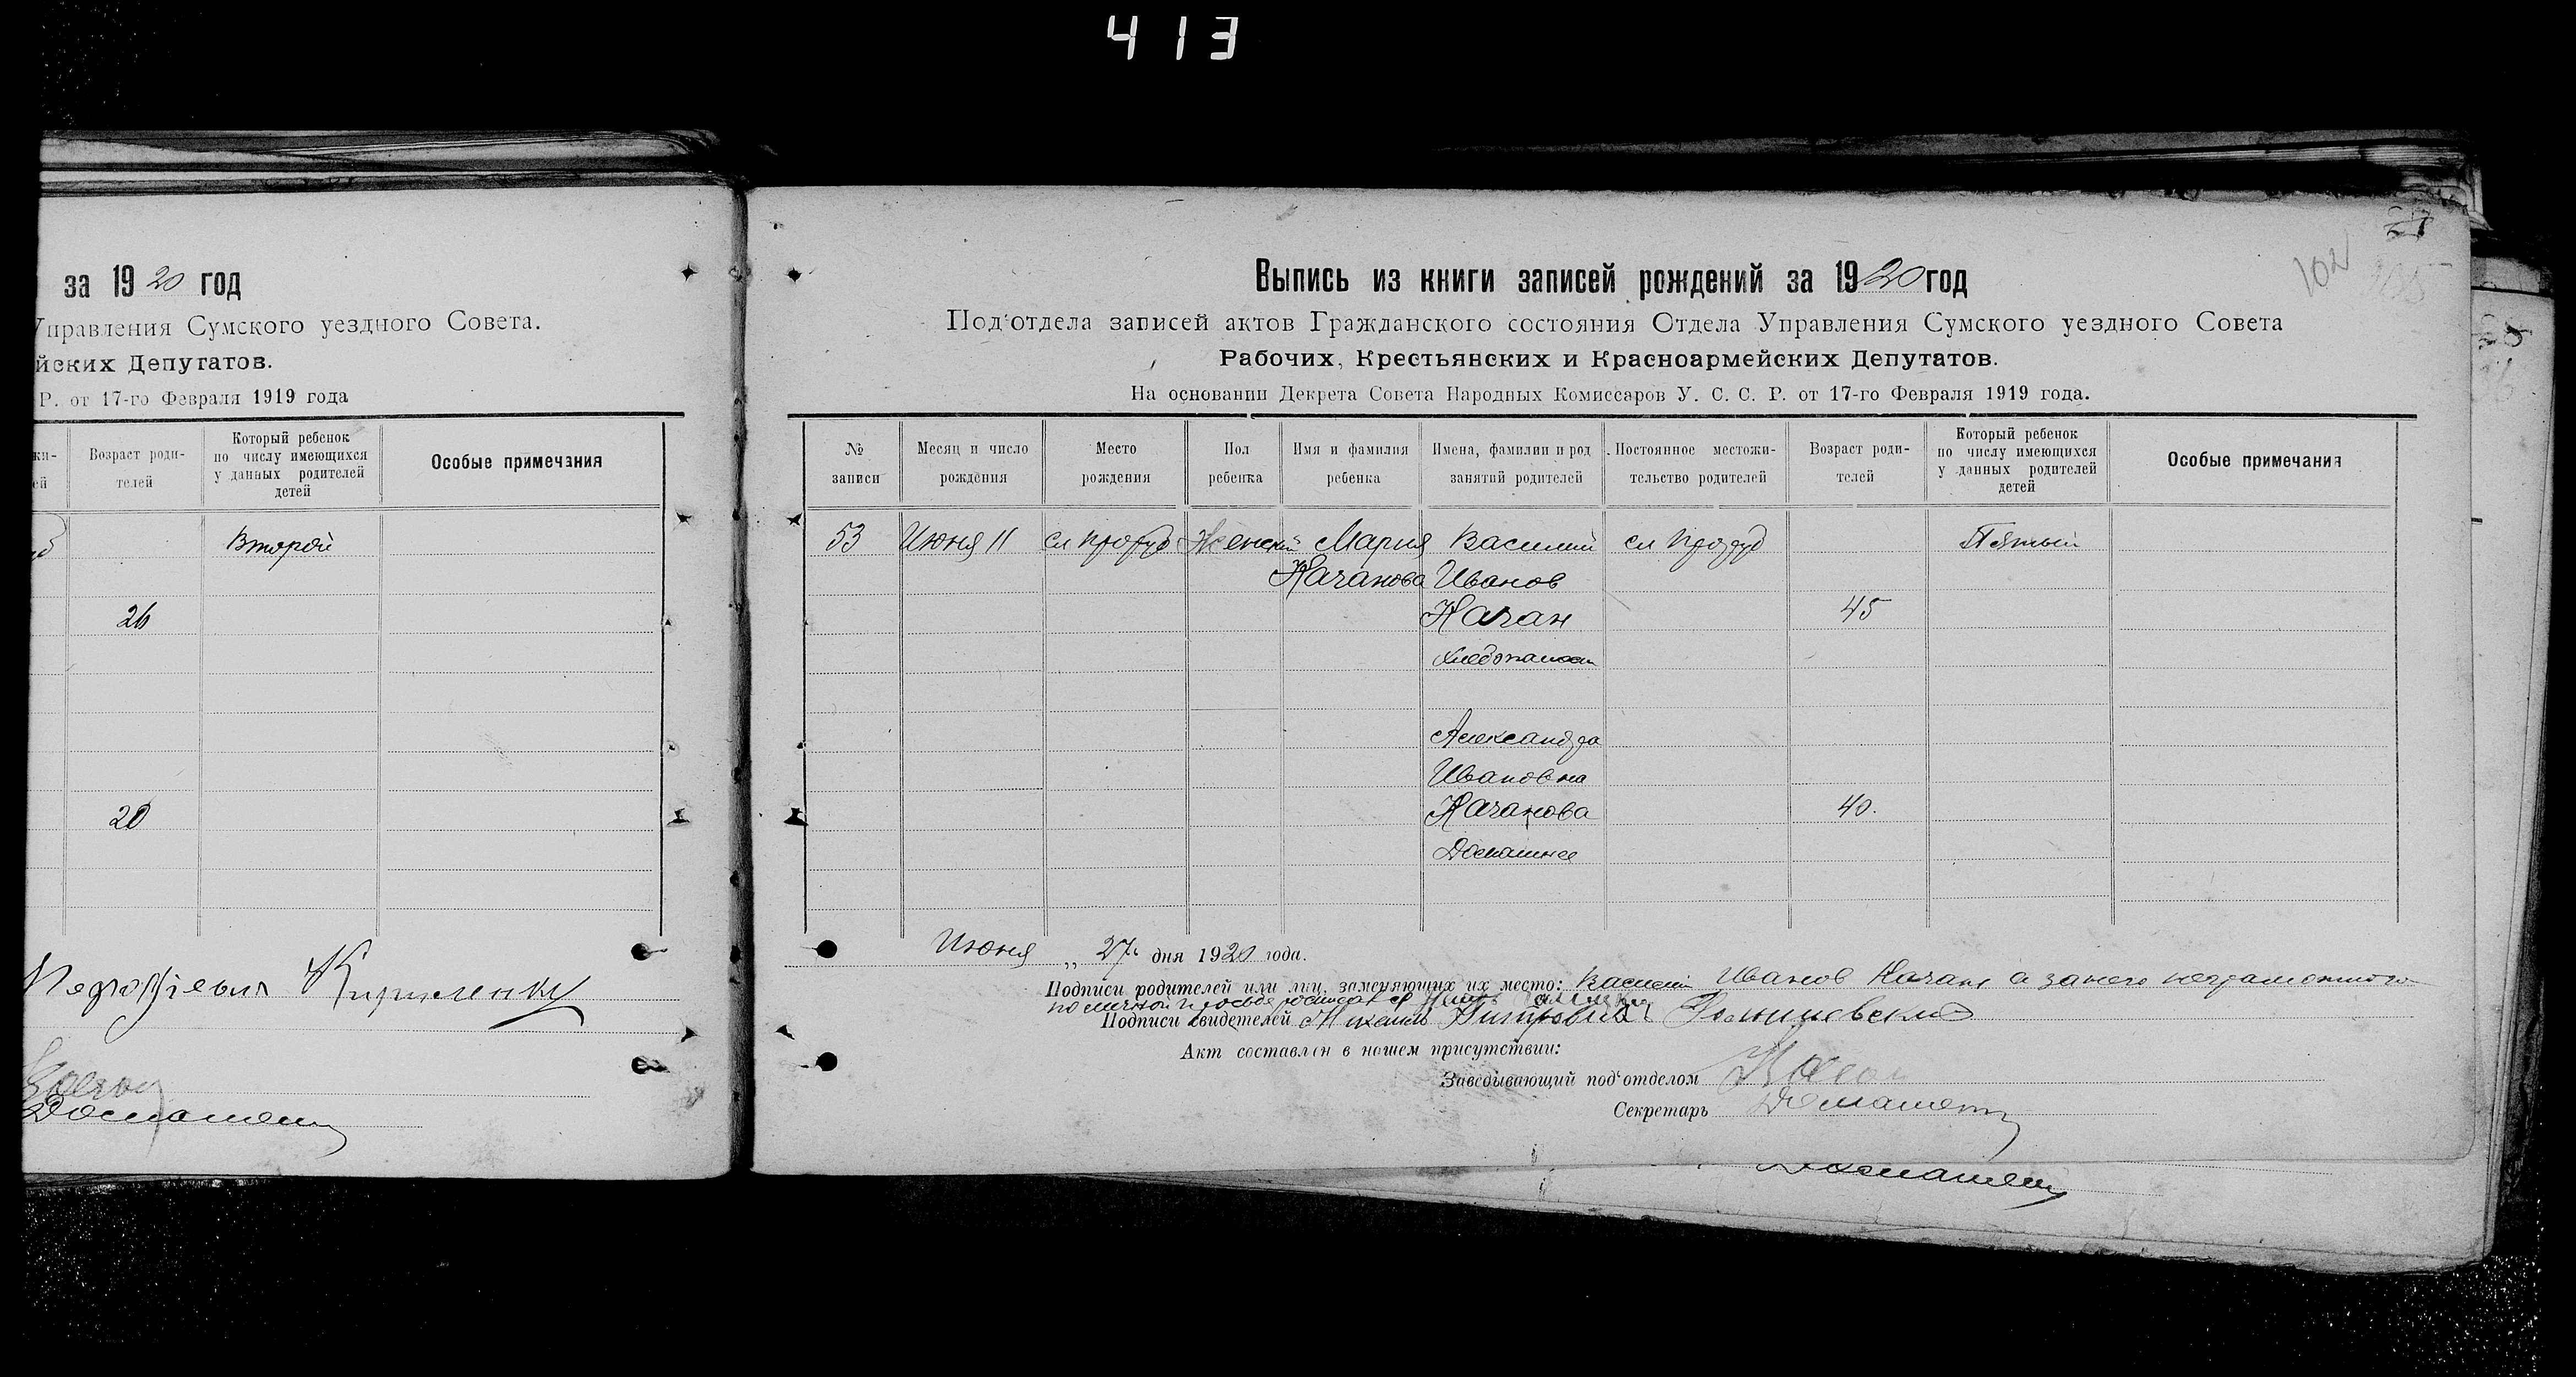 413
за 1920 год
Управления Сумского уездного Совета.
йских Депутатов.
Р. от 17-го Февраля 1919 года
Возраст роди-
телей
Который ребенок
по числу имеющихся
у данных родителей
детей
Особые примечания
Второй
26
20
Кириленко
Домашен
27
102
105
Выпись из книги записей рождений за 1920 год
Под'отдела записей актов Гражданского состояния Отдела Управления Сумского уездного Совета
Рабочих, Крестьянских и Красноармейских Депутатов.
На основании Декрета Совета Народных Комиссаров У. С. С. Р. от 17-го Февраля 1919 года.
№
записи
Месяц и число
рождения
Место
рождения
Пол
ребенка
Имя и фамилия
ребенка
Имена, фамилии и род
занятий родителей
Постоянное местожи-
тельство родителей
Возраст роди-
телей
Который ребенок
по числу имеющихся
у данных родителей
детей
Особые примечания
53 Июня 11 сл Женский Мария Василий сл Пятый
Качанова Иванов
Качан 45
Хлебопашест
Александра
Ивановна
Качанова 40.
Домашнее
Июня „ 27" дня 1920 года.
Подписи родителей или лиц, заменяющих их место: Василий Иванов Качан а за него неграмотного
по личной просьбе
Подписи свидетелей
Акт составлен в нашем присутствии:
Заведывающий под'отделом
Секретарь Домашен
Домашен
28